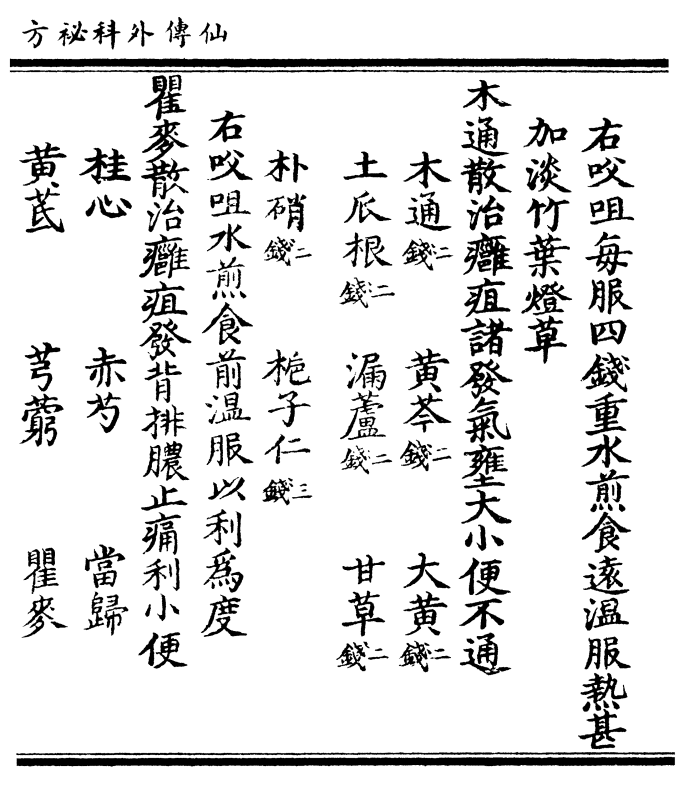 仙傳外科祕方
右㕮咀每服四錢重水煎食遠溫服熱甚
加淡竹葉燈草
木通散治癰疽諸發氣壅大小便不通
木通二錢 黃芩二錢 大黃二錢
土瓜根二錢 漏蘆二錢 甘草二錢
朴硝二錢 梔子仁三錢
右㕮咀水煎食前溫服以利爲度
瞿麥散治癰疽發背排膿止痛利小便
桂心 赤芍 當歸
黃芪 芎藭 瞿麥